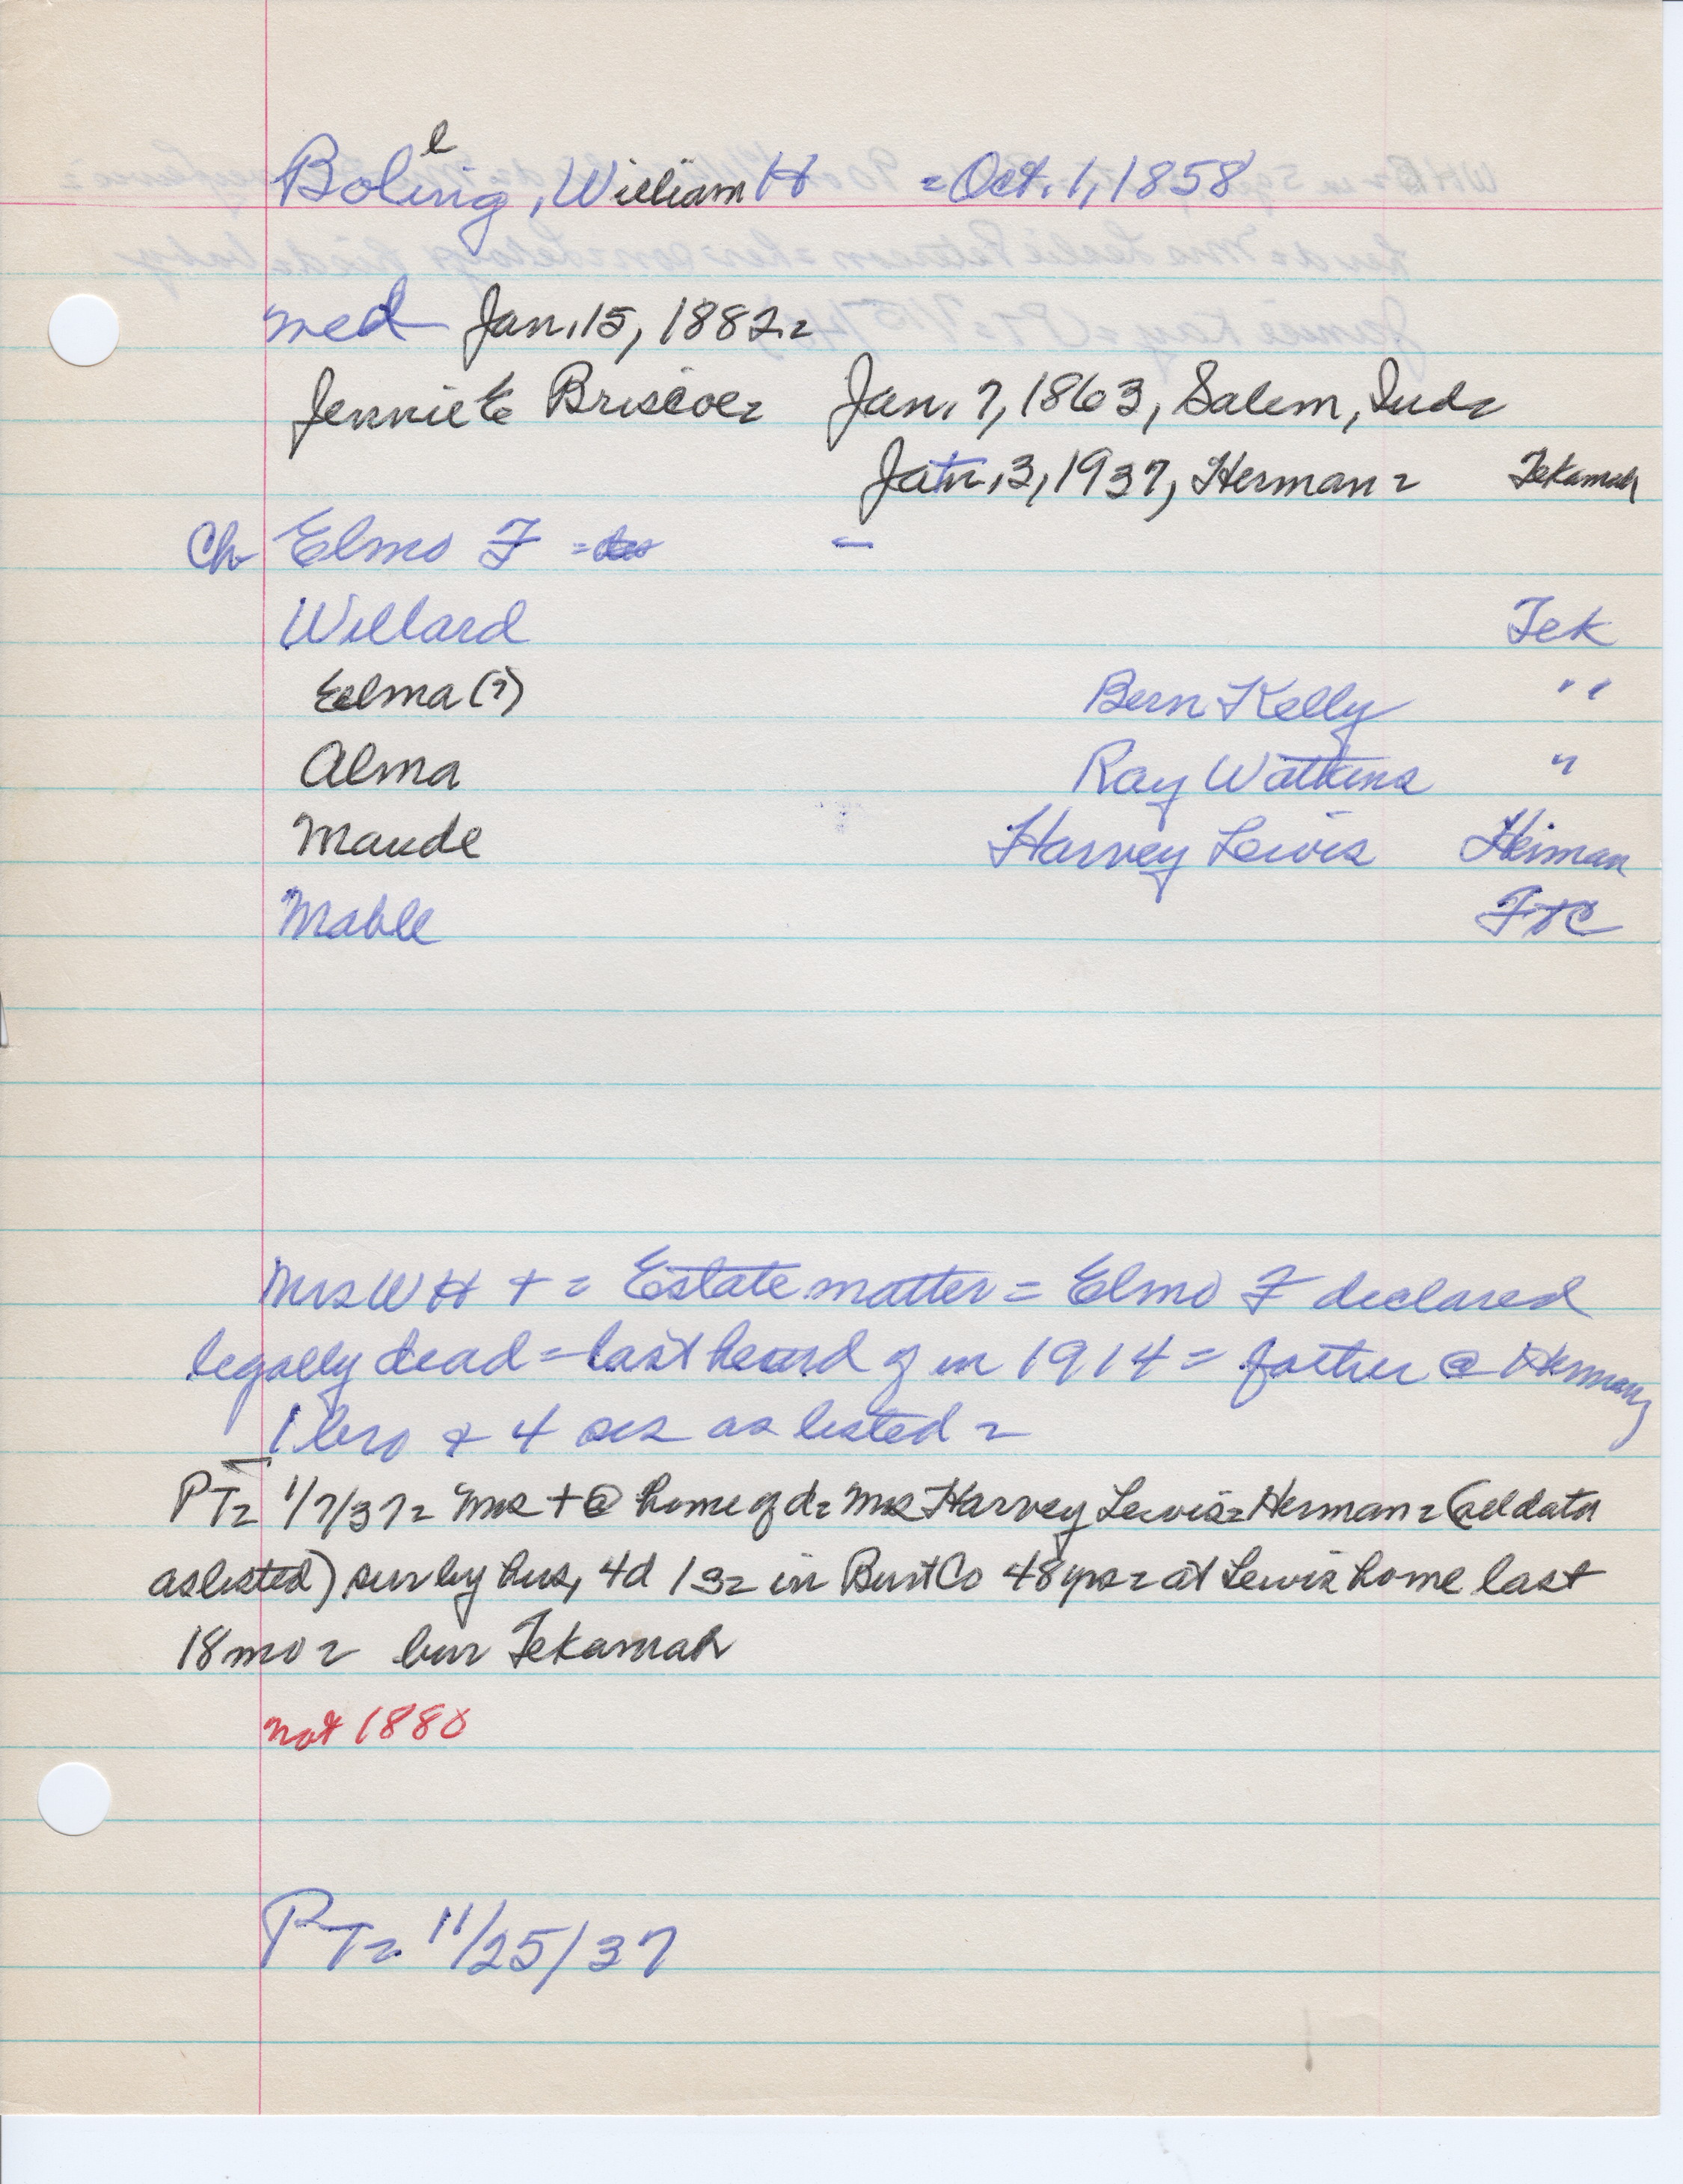 l
Boling, William H = Oct. 1, 1858
med Jan. 15, 1882 =
Jennie E Briscoe = Jan. 7, 1863, Salem, Ind =
Jan. 3, 1937, Herman = Tekamah
Ch Elmo F = -
Willard Tek
Eelma (?) Bern Kelly " "
Alma Ray Watkins "
Maude Harvey Lewis Herman
Mable FtC
Mrs W H + = Estate matter = Elmo F declared
legally dead = last heard of in 1914 = father @ Herman,
1 bro & 4 sis as listed =
PT = 1/7/37 = Mrs + @ home of d = Mrs Harvey Lewis = Herman = (all data
as listed) sur by hus, 4d 1s = in Burt Co 48 yrs = at Lewis home last
18 mo = bur Tekamah
not 1880
PT = 11/25/37